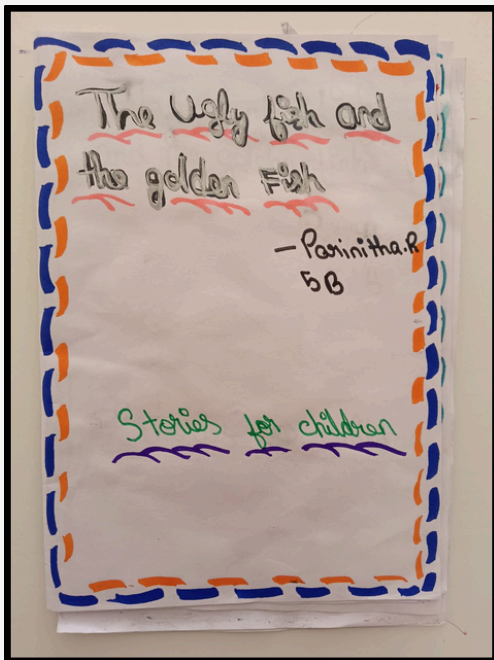 The Ugly fish and
the golden Fish
- Parinitha.R
5B
Stories for children